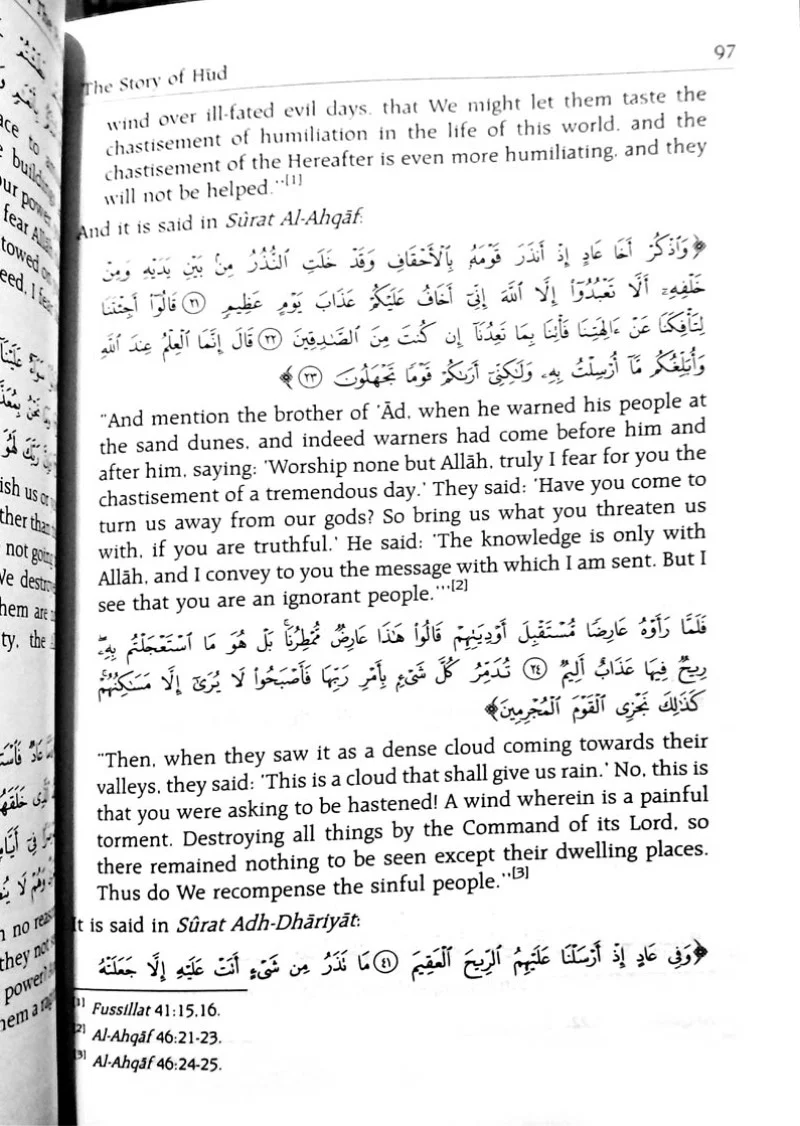 The Story of Hūd
97
wind over ill-fated evil days, that We might let them taste the
chastisement of humiliation in the life of this world, and the
chastisement of the Hereafter is even more humiliating, and they
will not be helped."[1]
And it is said in Sûrat Al-Ahqāf:
﴿وَٱذْكُرْ أَخَا عَادٍ إِذْ أَنذَرَ قَوْمَهُۥ بِٱلْأَحْقَافِ وَقَدْ خَلَتِ ٱلنُّذُرُ مِنۢ بَيْنِ يَدَيْهِ وَمِنْ
خَلْفِهِۦٓ أَلَّا تَعْبُدُوٓا۟ إِلَّا ٱللَّهَ إِنِّىٓ أَخَافُ عَلَيْكُمْ عَذَابَ يَوْمٍ عَظِيمٍ ٢١ قَالُوٓا۟ أَجِئْتَنَا
لِتَأْفِكَنَا عَنْ ءَالِهَتِنَا فَأْتِنَا بِمَا تَعِدُنَآ إِن كُنتَ مِنَ ٱلصَّـٰدِقِينَ ٢٢ قَالَ إِنَّمَا ٱلْعِلْمُ عِندَ ٱللَّهِ
وَأُبَلِّغُكُم مَّآ أُرْسِلْتُ بِهِۦ وَلَـٰكِنِّىٓ أَرَىٰكُمْ قَوْمًا تَجْهَلُونَ ٢٣﴾
"And mention the brother of 'Ād, when he warned his people at
the sand dunes, and indeed warners had come before him and
after him, saying: 'Worship none but Allāh, truly I fear for you the
chastisement of a tremendous day.' They said: 'Have you come to
turn us away from our gods? So bring us what you threaten us
with, if you are truthful.' He said: 'The knowledge is only with
Allāh, and I convey to you the message with which I am sent. But I
see that you are an ignorant people.'"[2]
فَلَمَّا رَأَوْهُ عَارِضًا مُّسْتَقْبِلَ أَوْدِيَتِهِمْ قَالُوا۟ هَـٰذَا عَارِضٌ مُّمْطِرُنَا ۚ بَلْ هُوَ مَا ٱسْتَعْجَلْتُم بِهِۦ ۖ
رِيحٌ فِيهَا عَذَابٌ أَلِيمٌ ٢٤ تُدَمِّرُ كُلَّ شَىْءٍۭ بِأَمْرِ رَبِّهَا فَأَصْبَحُوا۟ لَا يُرَىٰٓ إِلَّا مَسَـٰكِنُهُمْ ۚ
كَذَٰلِكَ نَجْزِى ٱلْقَوْمَ ٱلْمُجْرِمِينَ﴾
"Then, when they saw it as a dense cloud coming towards their
valleys, they said: 'This is a cloud that shall give us rain.' No, this is
that you were asking to be hastened! A wind wherein is a painful
torment. Destroying all things by the Command of its Lord, so
there remained nothing to be seen except their dwelling places.
Thus do We recompense the sinful people."[3]
It is said in Sûrat Adh-Dhāriyāt:
﴿وَفِى عَادٍ إِذْ أَرْسَلْنَا عَلَيْهِمُ ٱلرِّيحَ ٱلْعَقِيمَ ٤١ مَا تَذَرُ مِن شَىْءٍ أَتَتْ عَلَيْهِ إِلَّا جَعَلَتْهُ
[1] Fussilat 41:15,16.
[2] Al-Ahqāf 46:21-23.
[3] Al-Ahqāf 46:24-25.